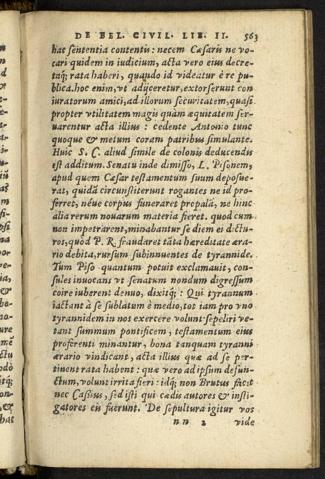 DE BEL. CIVIL. LIB. II. 563
hac sententia contentis: necem Cæsaris ne vo-
cari quidem in iudicium, acta vero eius decre-
taq́; rata haberi, quando id videatur è re pu-
blica. hoc enim, vt adijceretur, extorserunt con-
iuratorum amici, ad illorum securitatem, quasi
propter vtilitatem magis quàm æquitatem ser-
uarentur acta illius: cedente Antonio tunc
quoque & metum coram patribus simulante.
Huic S. C. aliud simile de colonis deducendis
est additum. Senatu inde dimisso, L. Pisonem,
apud quem Cæsar testamentum suum deposue-
rat, quidā circunsisterunt rogantes ne id pro-
ferret, néue corpus funeraret propalā, ne hinc
alia rerum nouarum materia fieret. quod cum
non impetrarent, minabantur se diem ei dictu-
ros, quòd P. R. fraudaret tāta hæreditate æra-
rio debita, rursum subinnuentes de tyrannide.
Tum Piso quantum potuit exclamauit, con-
sules inuocans vt senatum nondum digressum
coire iuberent denuo, dixitq́;: Qui tyrannum
iactant à se sublatum è medio, tot iam pro vno
tyrannidem in nos exercere volunt: sepeliri ve-
tant summum pontificem, testamentum eius
proferenti minantur, bona tanquam tyranni
ærario vindicant, acta illius quæ ad se per-
tinent rata habent: quæ vero ad ipsum defun-
ctum, volunt irrita fieri: idq́; non Brutus facit
nec Cassius, sed isti qui cædis autores & insti-
gatores eis fuerunt. De sepultura igitur vos
nn 2 vide